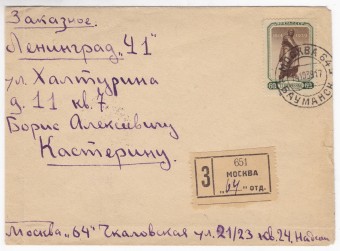 Заказное.
Ленинград "41"
ул. Халтурина
д. 11 кв. 7
Борис Алексеевичу
Кастерину.
МОСКВА 64
БАУМАНСК
651
З МОСКВА
"64" отд.
Москва "64" Чкаловская ул. 21/23 кв. 24,